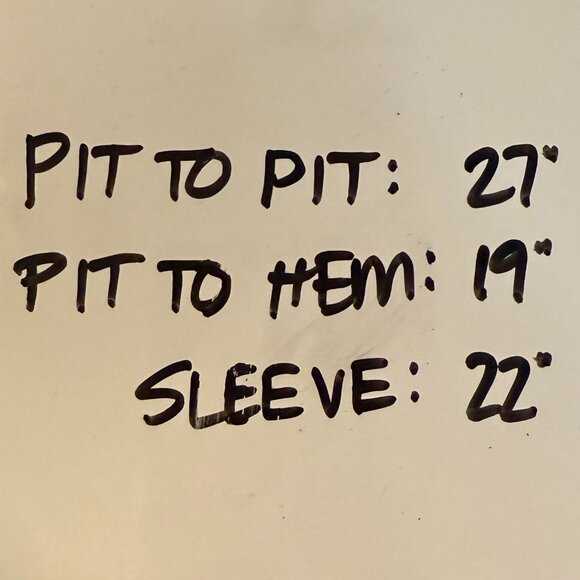 PIT TO PIT: 27"
PIT TO HEM: 19"
SLEEVE: 22"